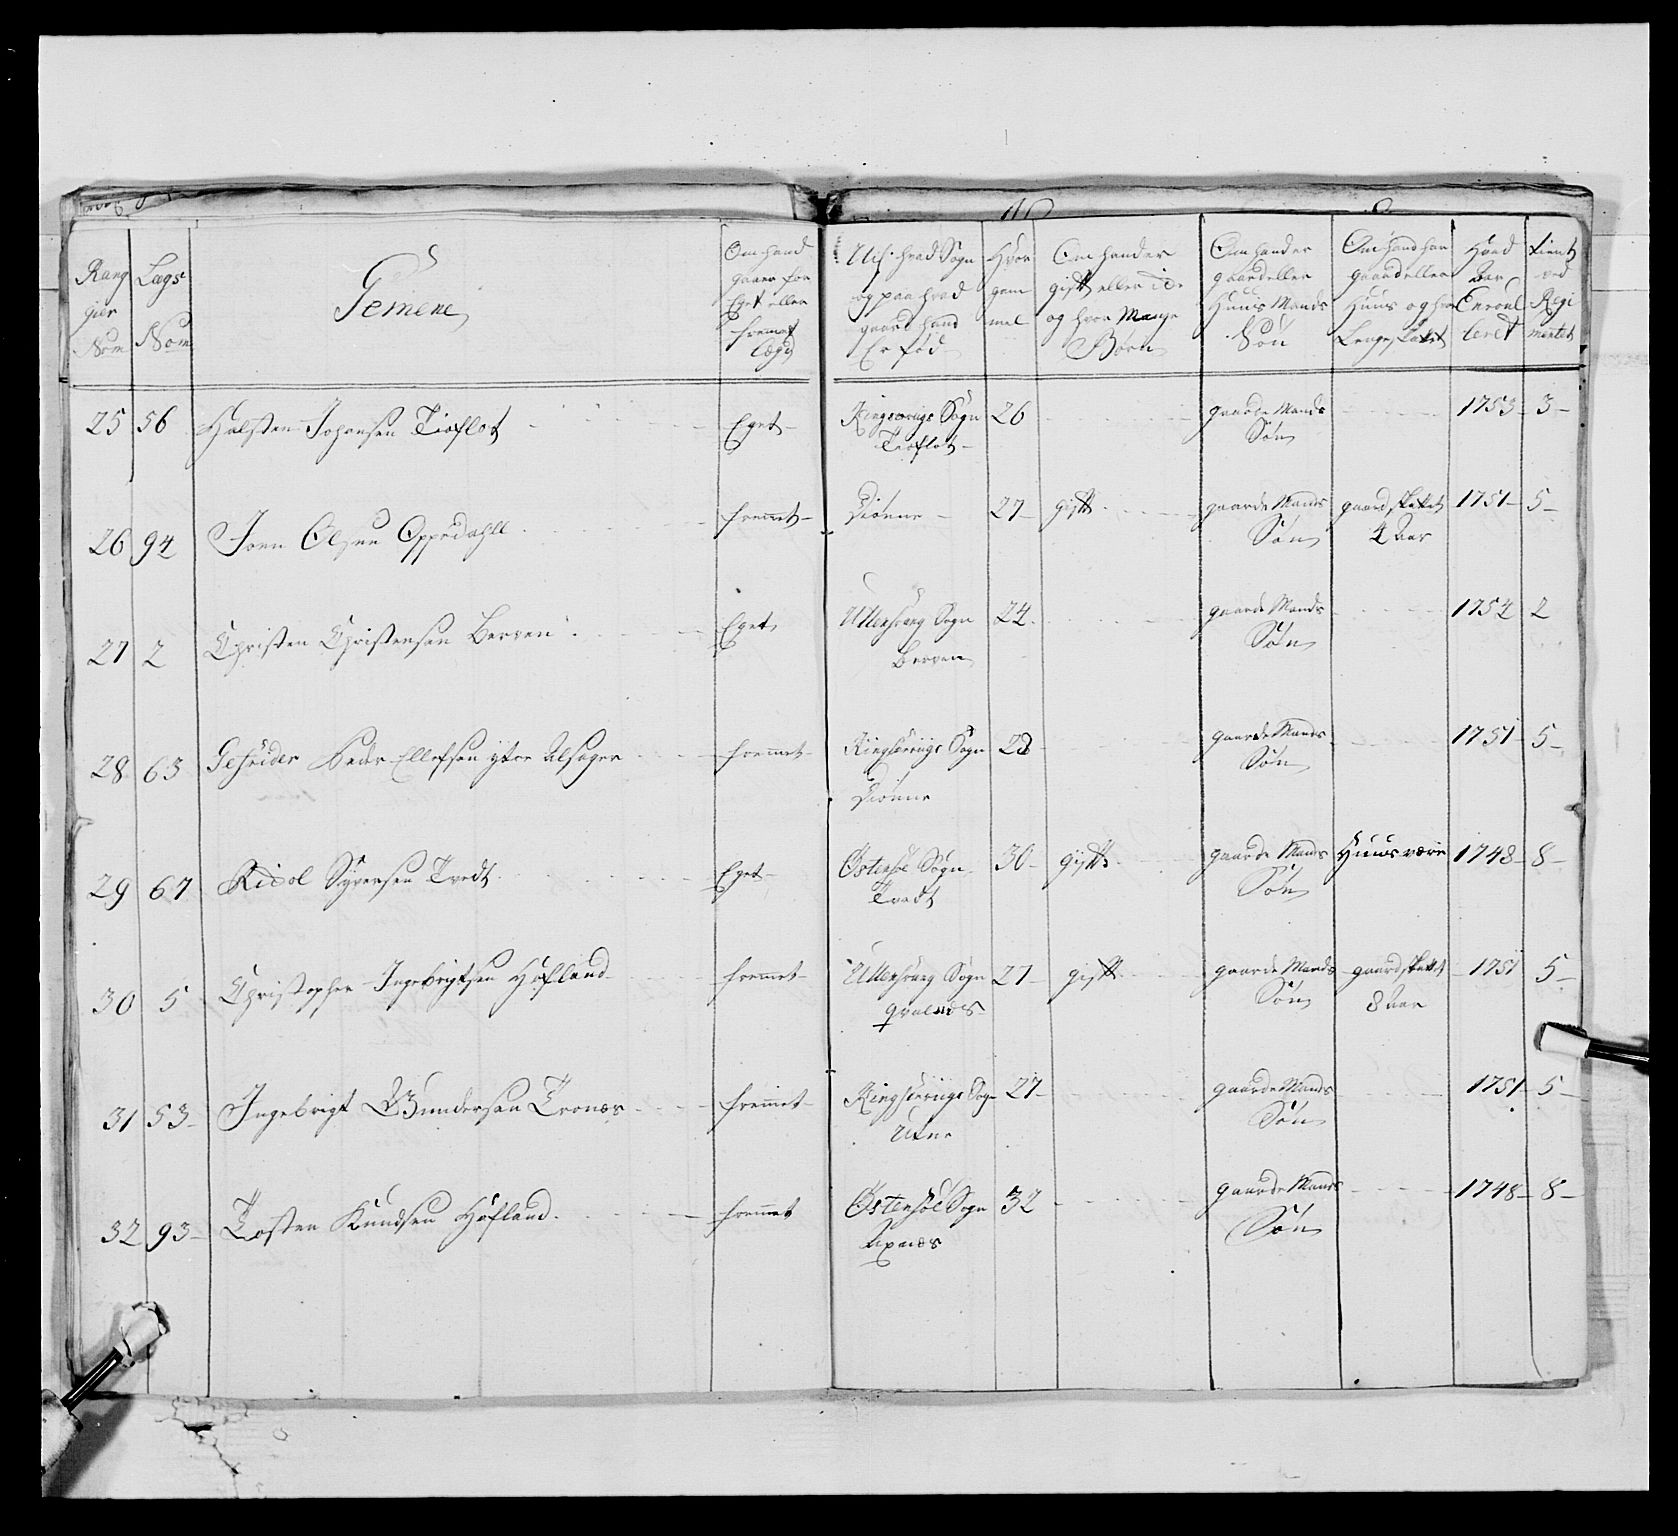 Rang gier Nom | Lægs Nom | Gemene | Om hand gaaer for Eget eller fremet Lægd | Udi hvad Sogn og paa hvad gaard hand Er fød | Hvor gam mel | Om hand er gift eller ei og hvor Mange Børn | Om hand er gaard eller Huus Mands Søn | Om hand har gaard eller Huus og hvor Længe | Hvad Aar Enroul leret | tient ved Regi mentet
25 | 56 | Halsten Johansen Tioflot | Eget | Kingservigs Sogn Tioflot | 26 | | gaarde Mands Søn | | 1753 | 3
26 | 94 | Joen Olsen Oppedahll | fremet | Diønne | 27 | gift | gaarde Mands Søn | gaard 4 Aar | 1751 | 5
27 | 2 | Christen Christensen Berven | Eget | Ullensvang Sogn Berven | 24 | | gaarde Mands Søn | | 1754 | 2
28 | 63 | Gefrider Peder Ellefsen ytre Alsager | fremmet | Kingserviigs Sogn Diønne | 28 | | gaarde Mands Søn | | 1751 | 5
29 | 67 | Nicol Syversen Tvedt | Eget | Østensøe Sogn Tvedt | 30 | gift | gaarde Mands Søn | Huusværie | 1748 | 8
30 | 5 | Christopher Ingebrigtsen Høfland | fremmet | Ullensvang Sogn qvalnæs | 27 | gift | gaarde Mands Søn | gaard 8 Aar | 1751 | 5
31 | 53 | Ingebrigt Gundersen Tronæs | fremmet | Kingserviigs Sogn Utne | 27 | | gaarde Mands Søn | | 1751 | 5
32 | 93 | Tosten Knudsen Høfland | fremmet | Østensøe Sogn Axnæs | 32 | | gaarde Mands Søn | | 1748 | 8